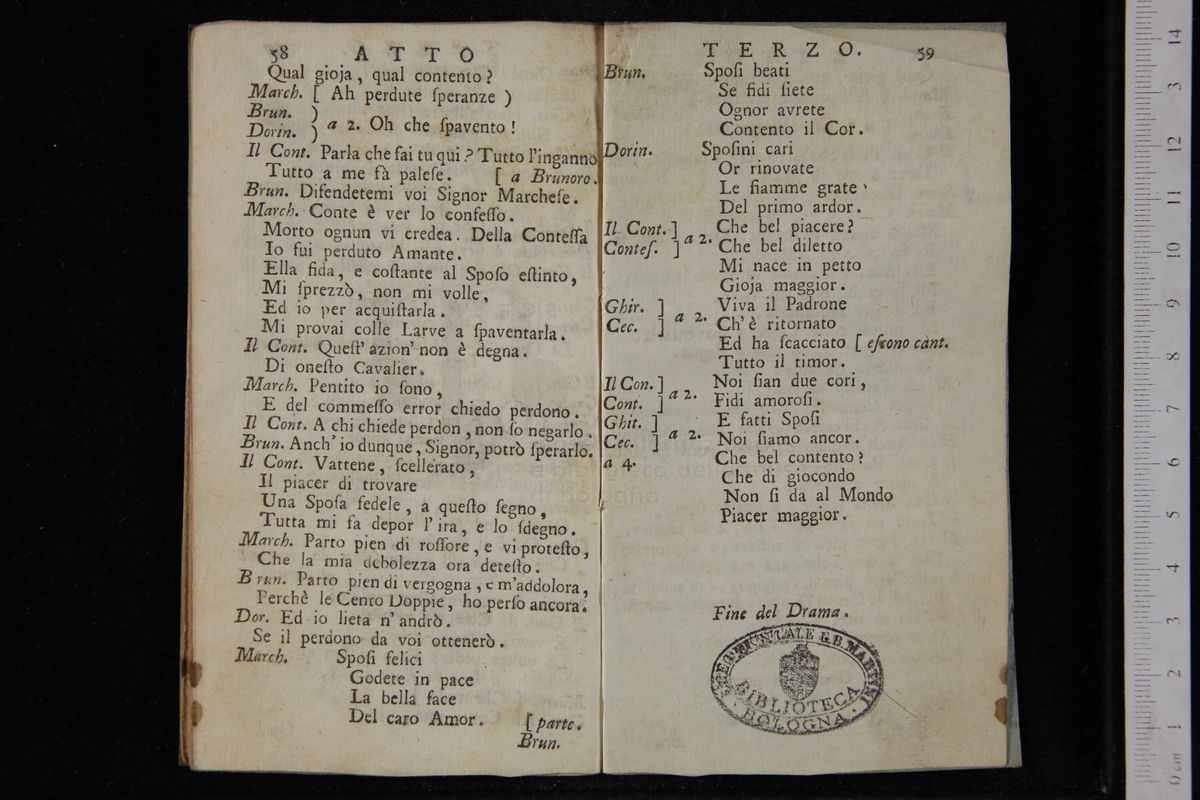 58 ATTO
Qual gioja, qual contento?
March. [ Ah perdute ſperanze )
Brun. )
Dorin. ) a 2. Oh che ſpavento!
Il Cont. Parla che fai tu qui? Tutto l'inganno
Tutto a me fà paleſe. [ a Brunoro.
Brun. Difendetemi voi Signor Marcheſe.
March. Conte è ver lo confeſſo.
Morto ognun vi credea. Della Conteſſa
Io fui perduto Amante.
Ella fida, e coſtante al Spoſo eſtinto,
Mi ſprezzò, non mi volle,
Ed io per acquiſtarla.
Mi provai colle Larve a ſpaventarla.
Il Cont. Queſt' azion' non è degna.
Di oneſto Cavalier.
March. Pentito io ſono,
E del commeſſo error chiedo perdono.
Il Cont. A chi chiede perdon, non ſo negarlo.
Brun. Anch' io dunque, Signor, potrò ſperarlo.
Il Cont. Vattene, ſcellerato,
Il piacer di trovare
Una Spoſa fedele, a queſto ſegno,
Tutta mi fa depor l' ira, e lo ſdegno.
March. Parto pien di roſſore, e vi proteſto,
Che la mia debolezza ora deteſto.
Brun. Parto pien di vergogna, e m'addolora,
Perchè le Cento Doppie, ho perſo ancora.
Dor. Ed io lieta n' andrò.
Se il perdono da voi ottenerò.
March. Spoſi felici
Godete in pace
La bella face
Del caro Amor. [ parte.
Brun.
TERZO. 59
Brun. Spoſi beati
Se fidi ſiete
Ognor avrete
Contento il Cor.
Dorin. Spoſini cari
Or rinovate
Le fiamme grate
Del primo ardor.
Il Cont. ] a 2. Che bel piacere?
Conteſ. ] Che bel diletto
Mi nace in petto
Gioja maggior.
Ghir. ] a 2. Viva il Padrone
Cec. ] Ch' è ritornato
Ed ha ſcacciato [ eſcono cant.
Tutto il timor.
Il Con. ] a 2. Noi ſian due cori,
Cont. ] Fidi amoroſi.
Ghit. ] a 2. E fatti Spoſi
Cec. ] Noi ſiamo ancor.
a 4. Che bel contento?
Che di giocondo
Non ſi da al Mondo
Piacer maggior.
Fine del Drama.
BIBLIOTECA
BOLOGNA